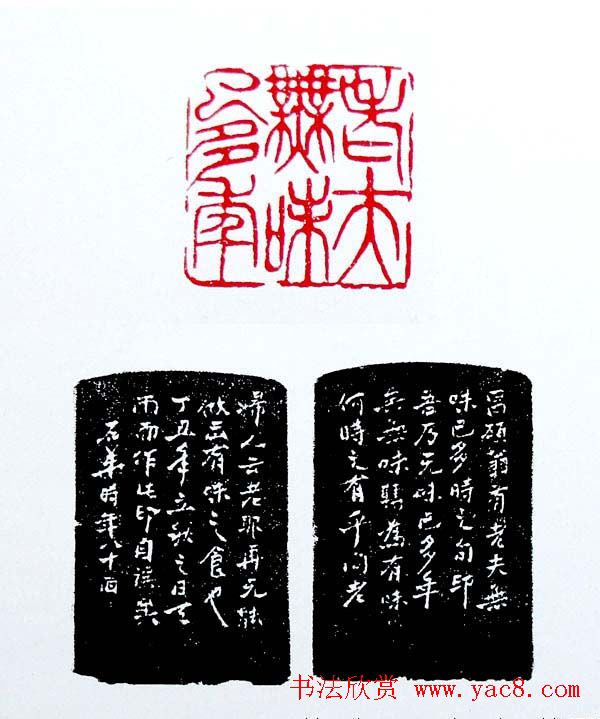 老夫
無味
已多年
昌碩翁有老夫無
味已多時之句印
吾乃无味已多年
矣無味轉為有味
何時之有乎问老
婦人云老那再无能
做出有味之食也
丁丑年立秋之日天
雨而作此印自
時年八十
书法欣赏 www.yac8.com